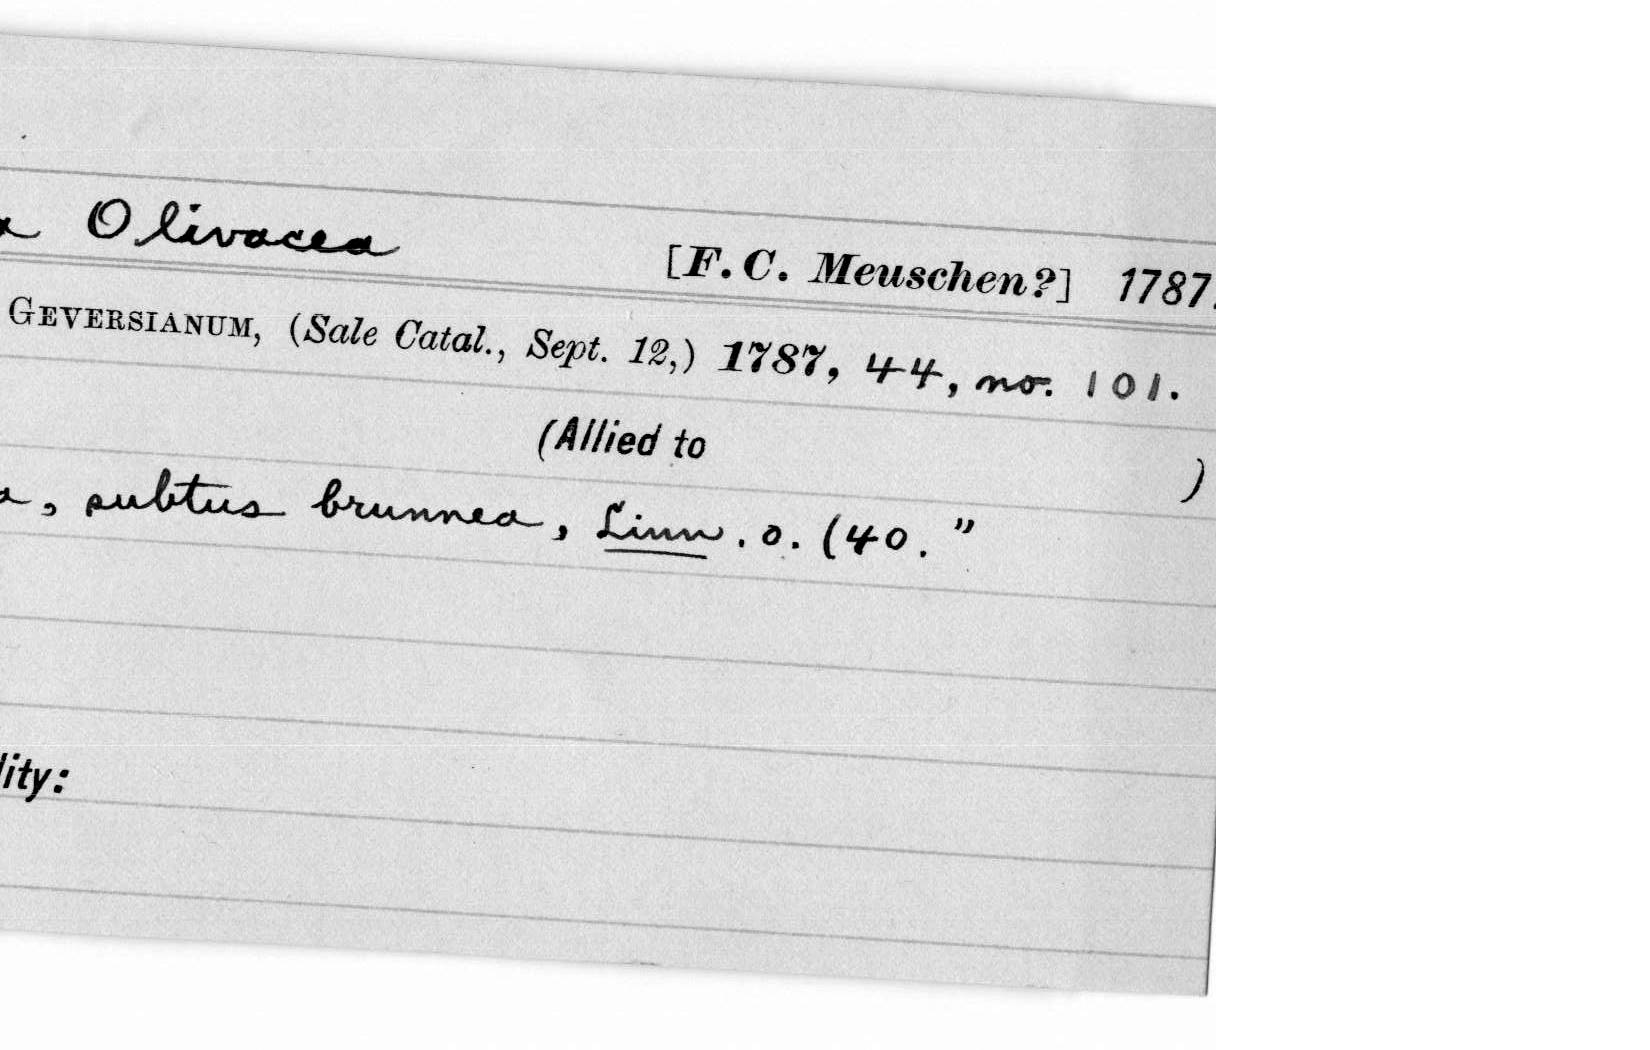 a Olivacea [F. C. Meuschen?] 1787.
GEVERSIANUM, (Sale Catal., Sept. 12,) 1787, 44, no. 101.
(Allied to )
a, subtus brunnea, Linn. o. (40."
lity: